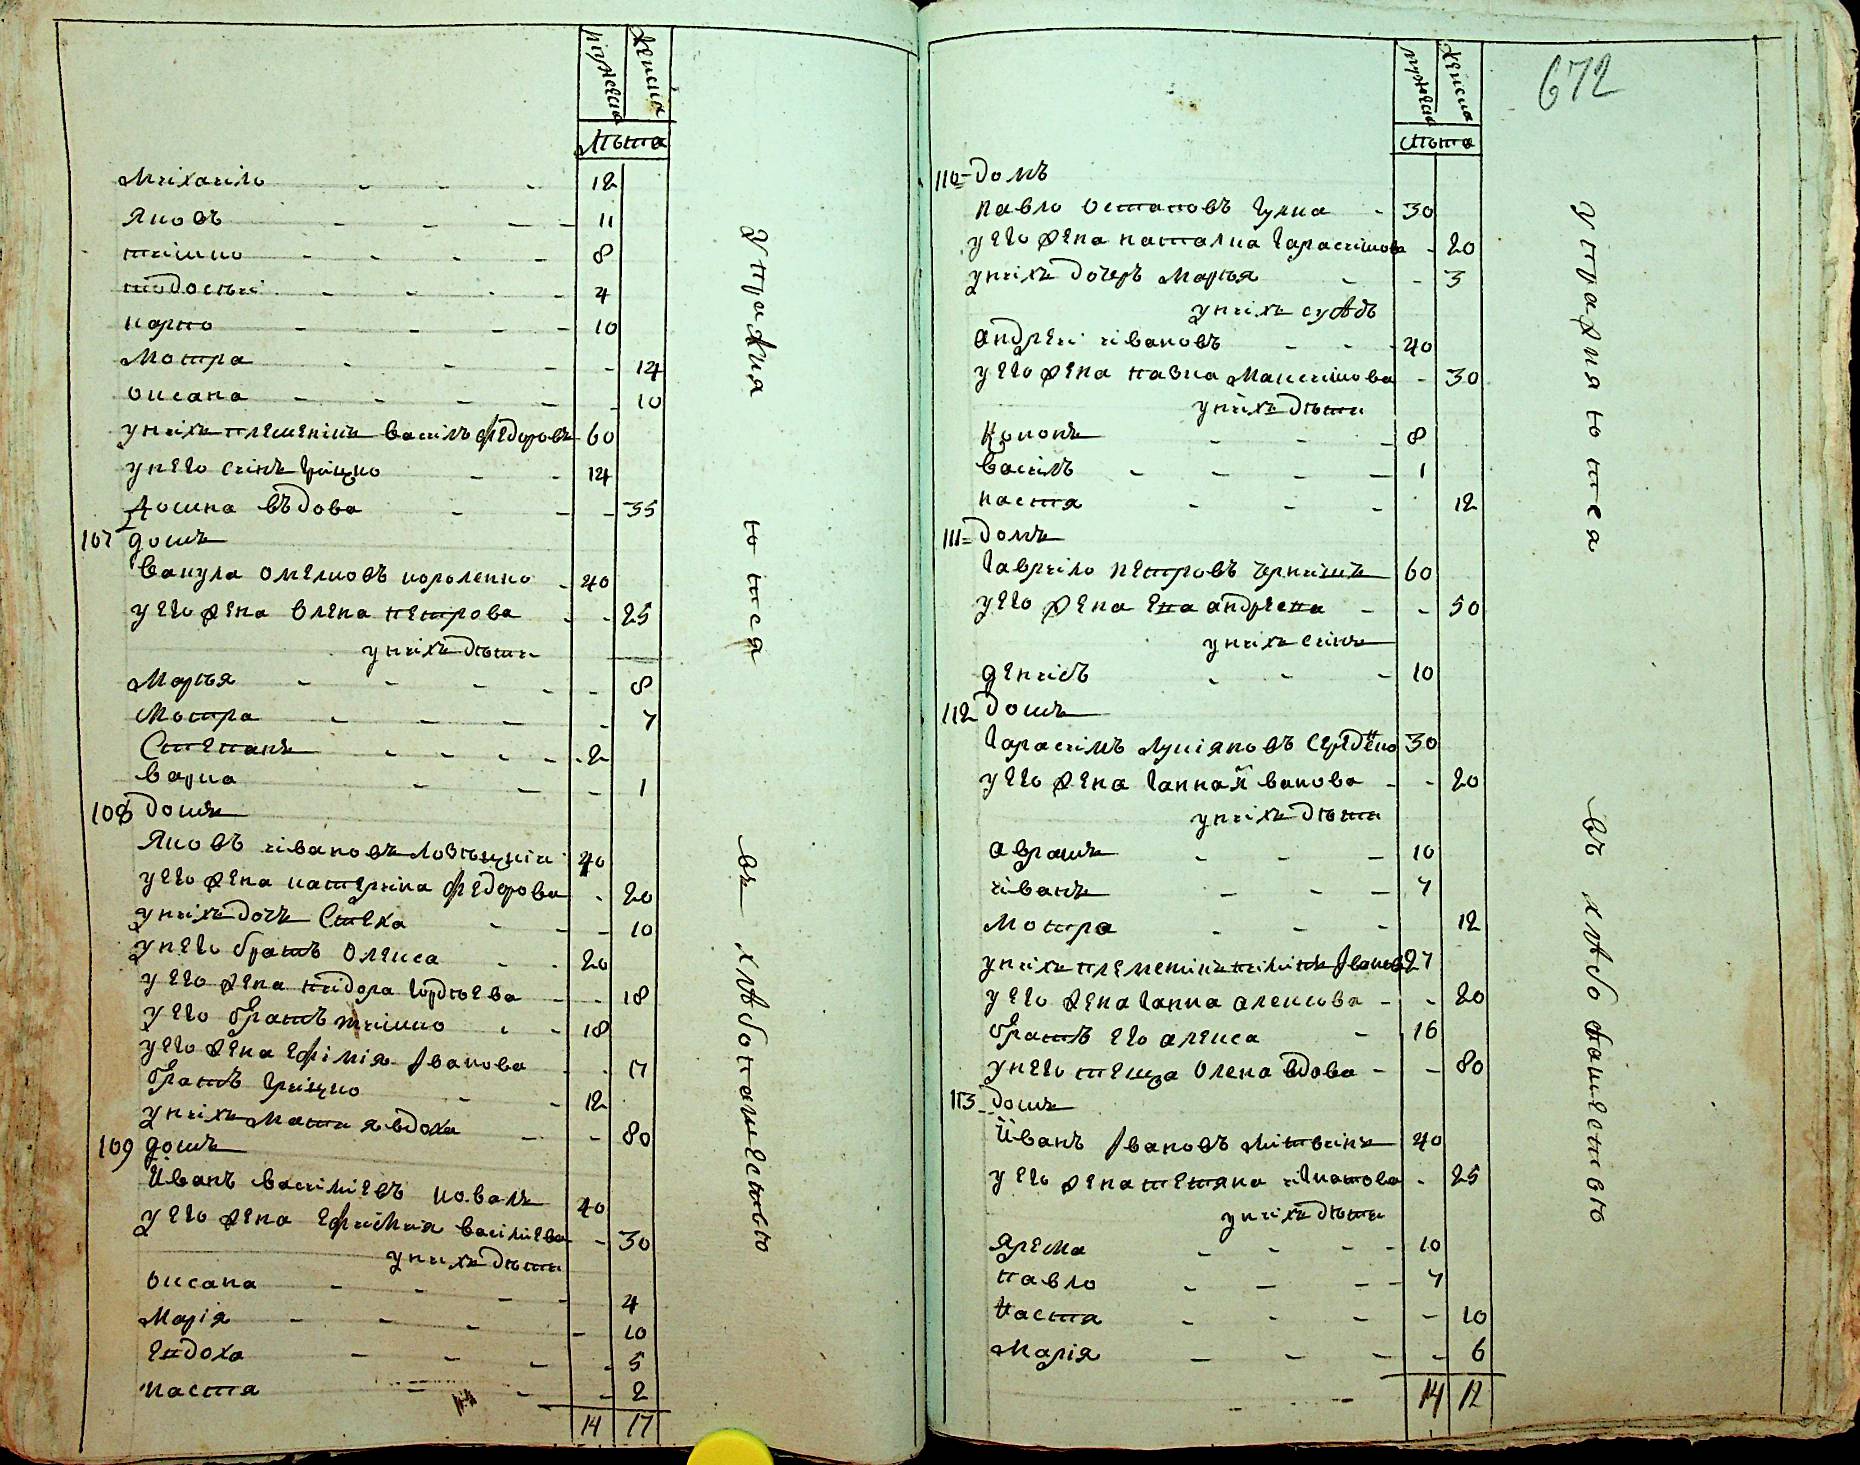 мужеска
женска
лѣта
Михаило - - - 12
Яковъ - - - 11
тимко - - - 8
тодосѣи - - - 4
карпо - - - 10
Мотра - - - 14
оксана - - - 10
унихъ племенікъ василь федоровъ 60
унего синъ грицко - - 14
въдова - - 35
107 домъ
вакула омелковъ короленко - 40
уего жена олена петрова - - 25
унихъ дѣти
Марья - - - 8
Мотра - - - 7
Степанъ - - - 2
варка - - - 1
108 домъ
Яковъ ивановъ 40
уего жена катерина федорова - 20
унихъ дочъ Стеха - - 10
унего братъ олекса - - 20
уего жена тидора гордѣева - - 18
уего братъ тимко - - 18
уего жена ефімія Iванова - - 17
братъ грицко - - 12
унихъ мати явдоха - - 80
109 домъ
Иванъ василіевъ коваль 40
уего жена ефимия василіева - 30
унихъ дѣти
оксана - - - 4
Марія - - - 10
Евдоха - - - 5
настя - - - 2
14 17
упражняются въ хлѣбопашествѣ
672
мужеска
женска
лѣта
110 домъ
павло остаповъ гулка - 30
уего жена наталка гарасимова - 20
унихъ дочеръ Марья - - 3
унихъ сусѣдъ
андреи ивановъ - - 40
уего жена Максимова - 30
унихъ дѣти
Кононъ - - - 8
василь - - - 1
настя - - - 12
111 домъ
гаврило петровъ 60
уего жена андреева - - 50
унихъ синъ
денисъ - - - 10
112 домъ
гарасимъ лукіяновъ Середенко 30
уего жена ганна Иванова - - 20
унихъ дѣти
аврамъ - - - 10
иванъ - - - 7
мотра - - - 12
унихъ племеникъ Iвановъ 27
уего жена ганна алексова - - 20
братъ его алекса - 16
унего теща олена вдова - - 80
113 домъ
Иванъ Iвановъ литвинъ 40
уего жена тетяна игнатова - 25
унихъ дѣти
ярема - - - 10
павло - - - 7
Настя - - - 10
Марія - - - 6
14 12
упражняются въ хлѣбопашествѣ